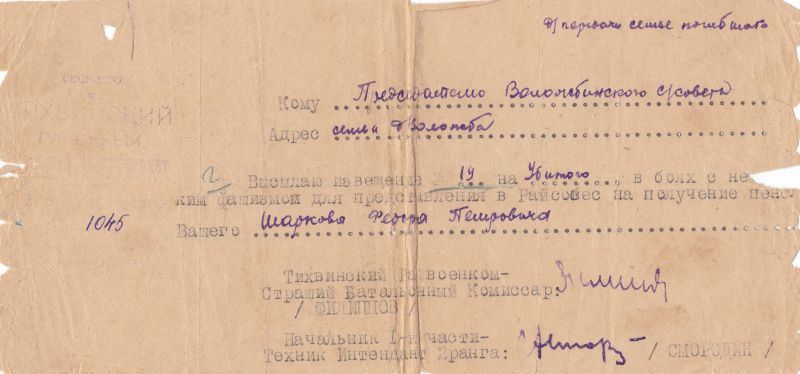 Д/ передачи семье погибшего
СССР-НКО
Кому Председателю Воложбинского с/совета
Адрес семьи д Воложба
2 Высылаю извещение № 19 на Убитого в боях с не
ким фашизмом для представления в Райсобес на получение пенс.
1045 Вашего Шаркова Федора Петровича
Тихвинский Райвоенком-
Страший Батальонный Комиссар:
/ ФИЛИППОВ /
Начальник 1-й части-
Техник Интендант 2ранга: / СМОРОДИН /